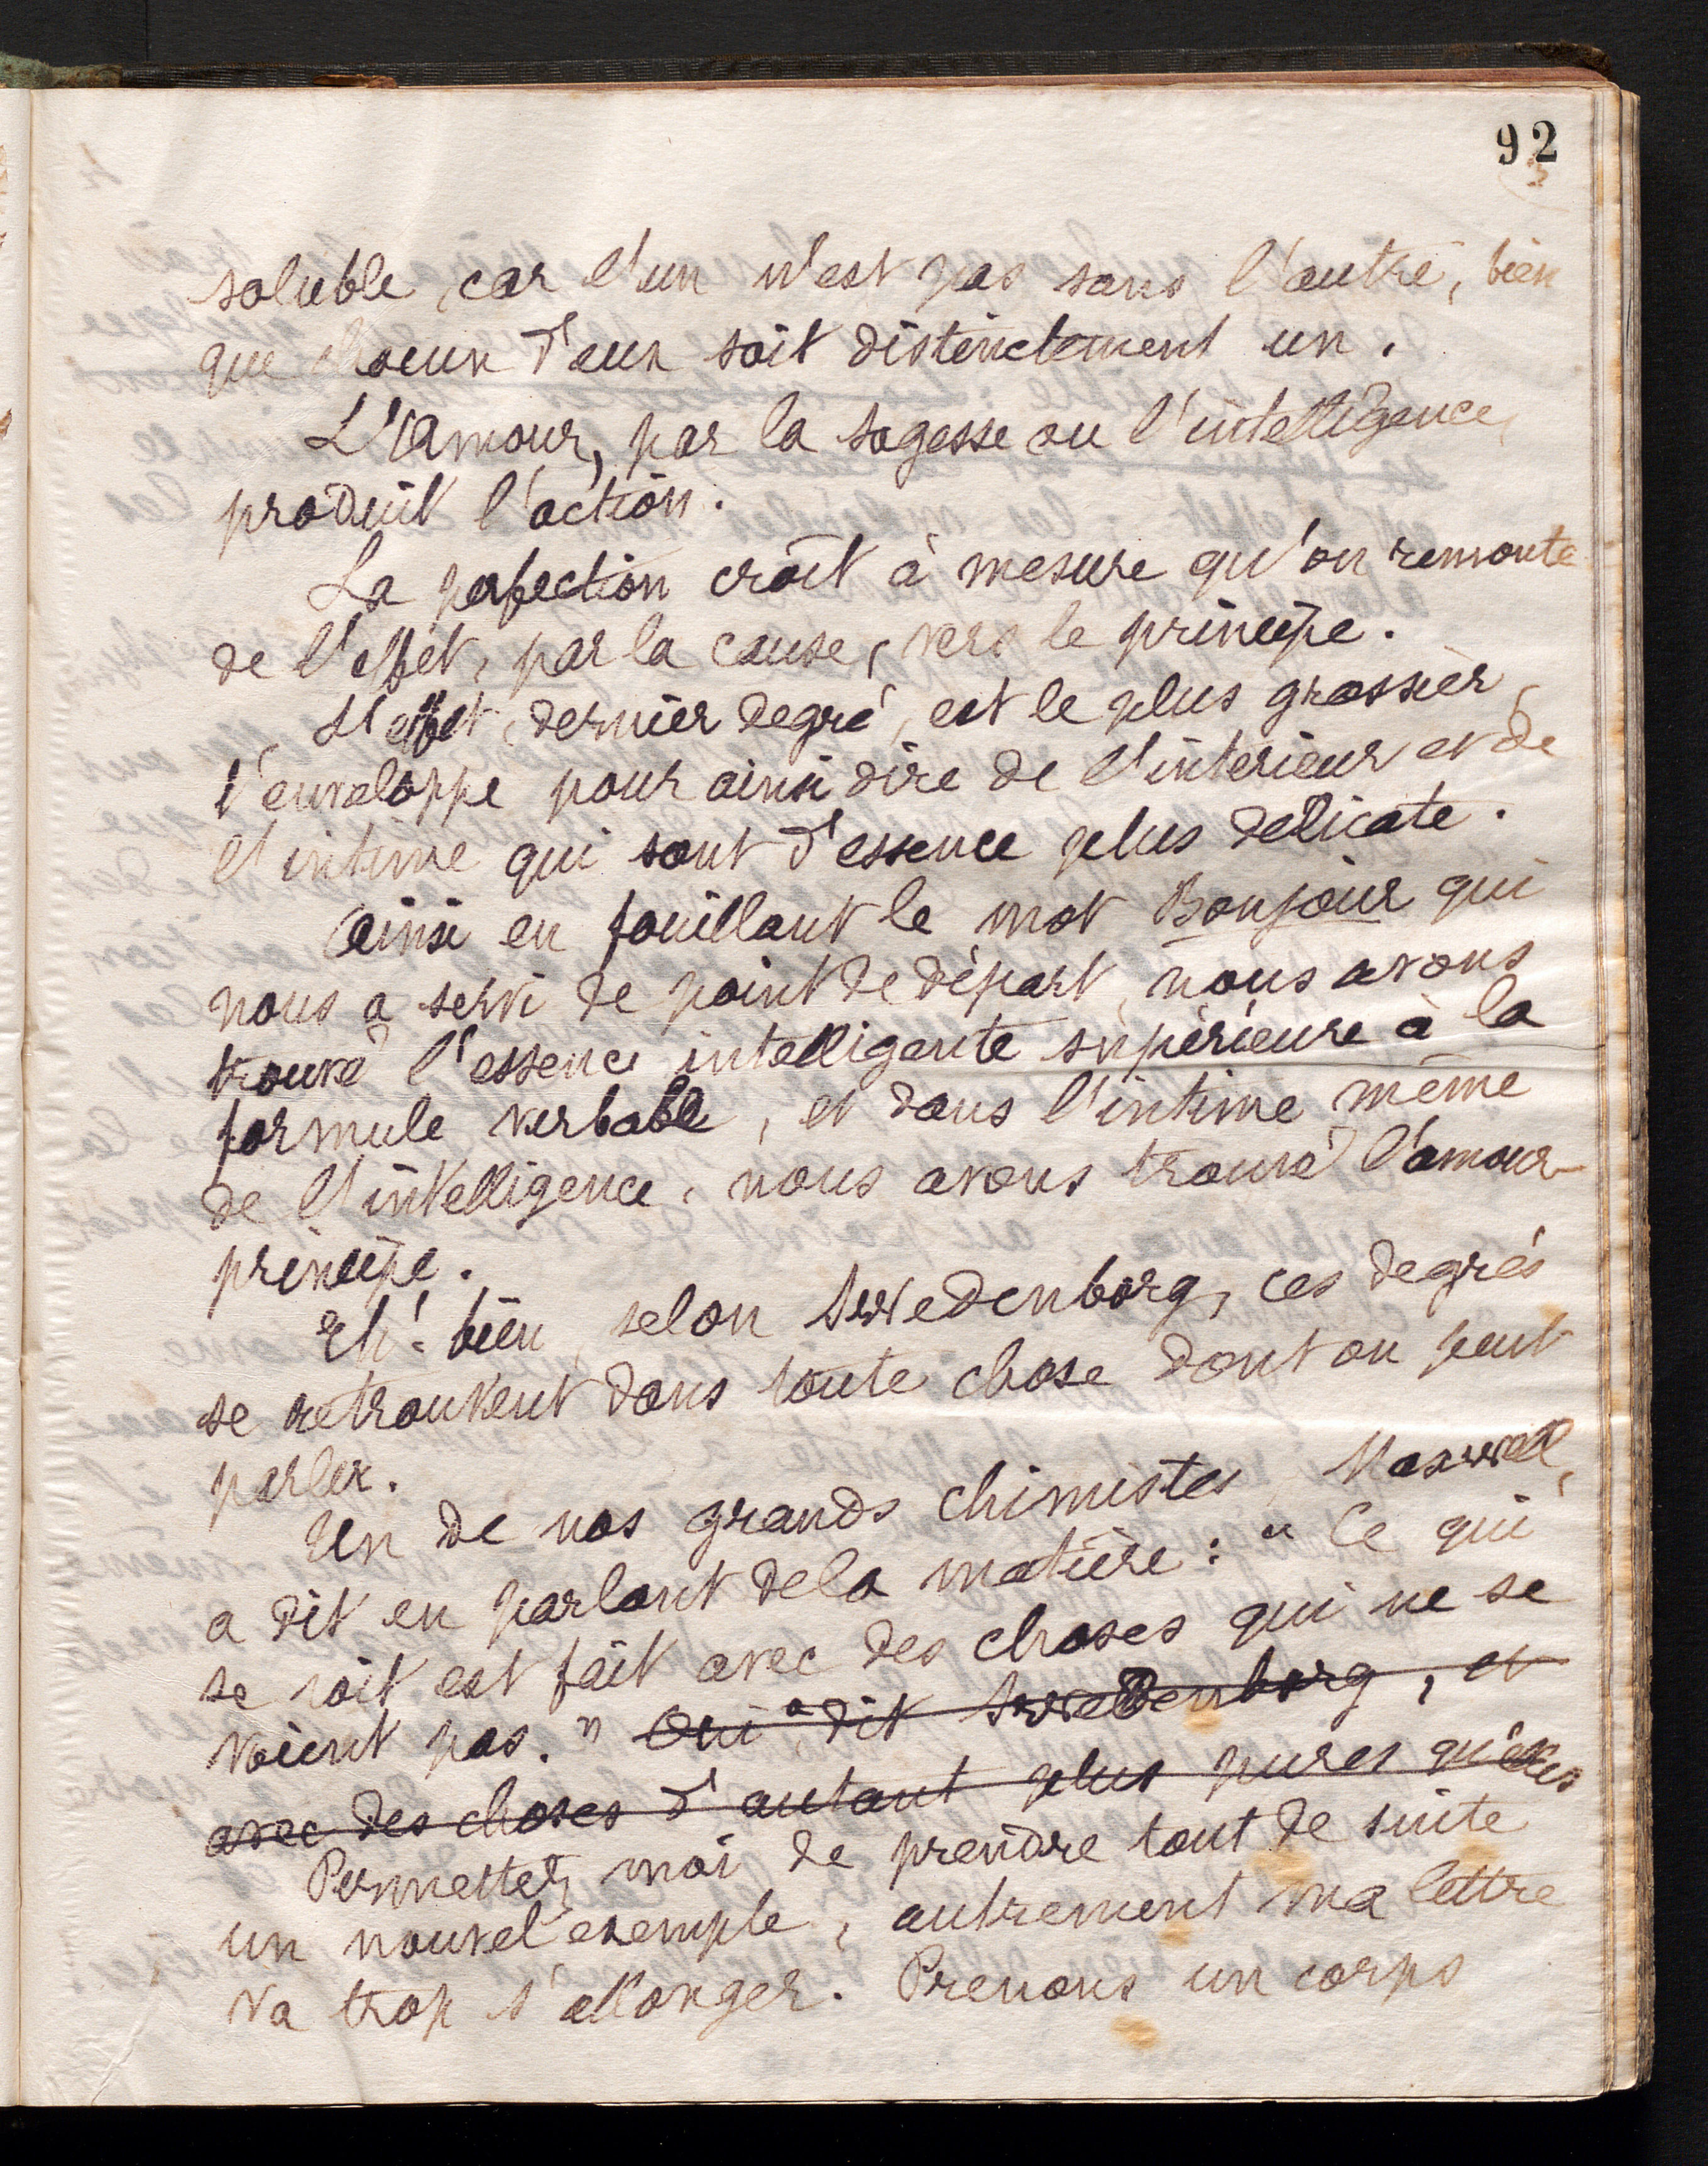 92
soluble, car l'un n'est pas sans l'autre, bien
que chacun d'eux soit distinctement un.
L'Amour, par la sagesse ou l'intelligence,
produit l'action.
La perfection croît à mesure qu'on remonte
de l'effet, par la cause, vers le principe.
L'effet, dernier degré, est le plus grossier,
l'enveloppe pour ainsi dire de l'interieur et de
l'intime qui sont d'essence plus delicate.
Ainsi en fouillant le mot Bonjour qui
nous a servi de point de départ, nous avons
trouvé l'essence intelligente supérieure à la
formule verbable, et dans l'intime même
de l'intelligence, nous avons trouvé l'amour-
principe.
Eh! bien, selon Swedenborg, ces degrés
se retrouvent dans toute chose dont on peut
parler.
Un de nos grands chimistes, Maxwell,
a dit en parlant de la matière : "Ce qui
se voit est fait avec des choses qui ne se
voient pas." Oui a dit Swedenborg, et
avec des choses d'autant plus pures qu'elles
Permettez moi de prendre tout de suite
un nouvel exemple, autrement ma lettre
va trop s'allonger. Prenons un corps